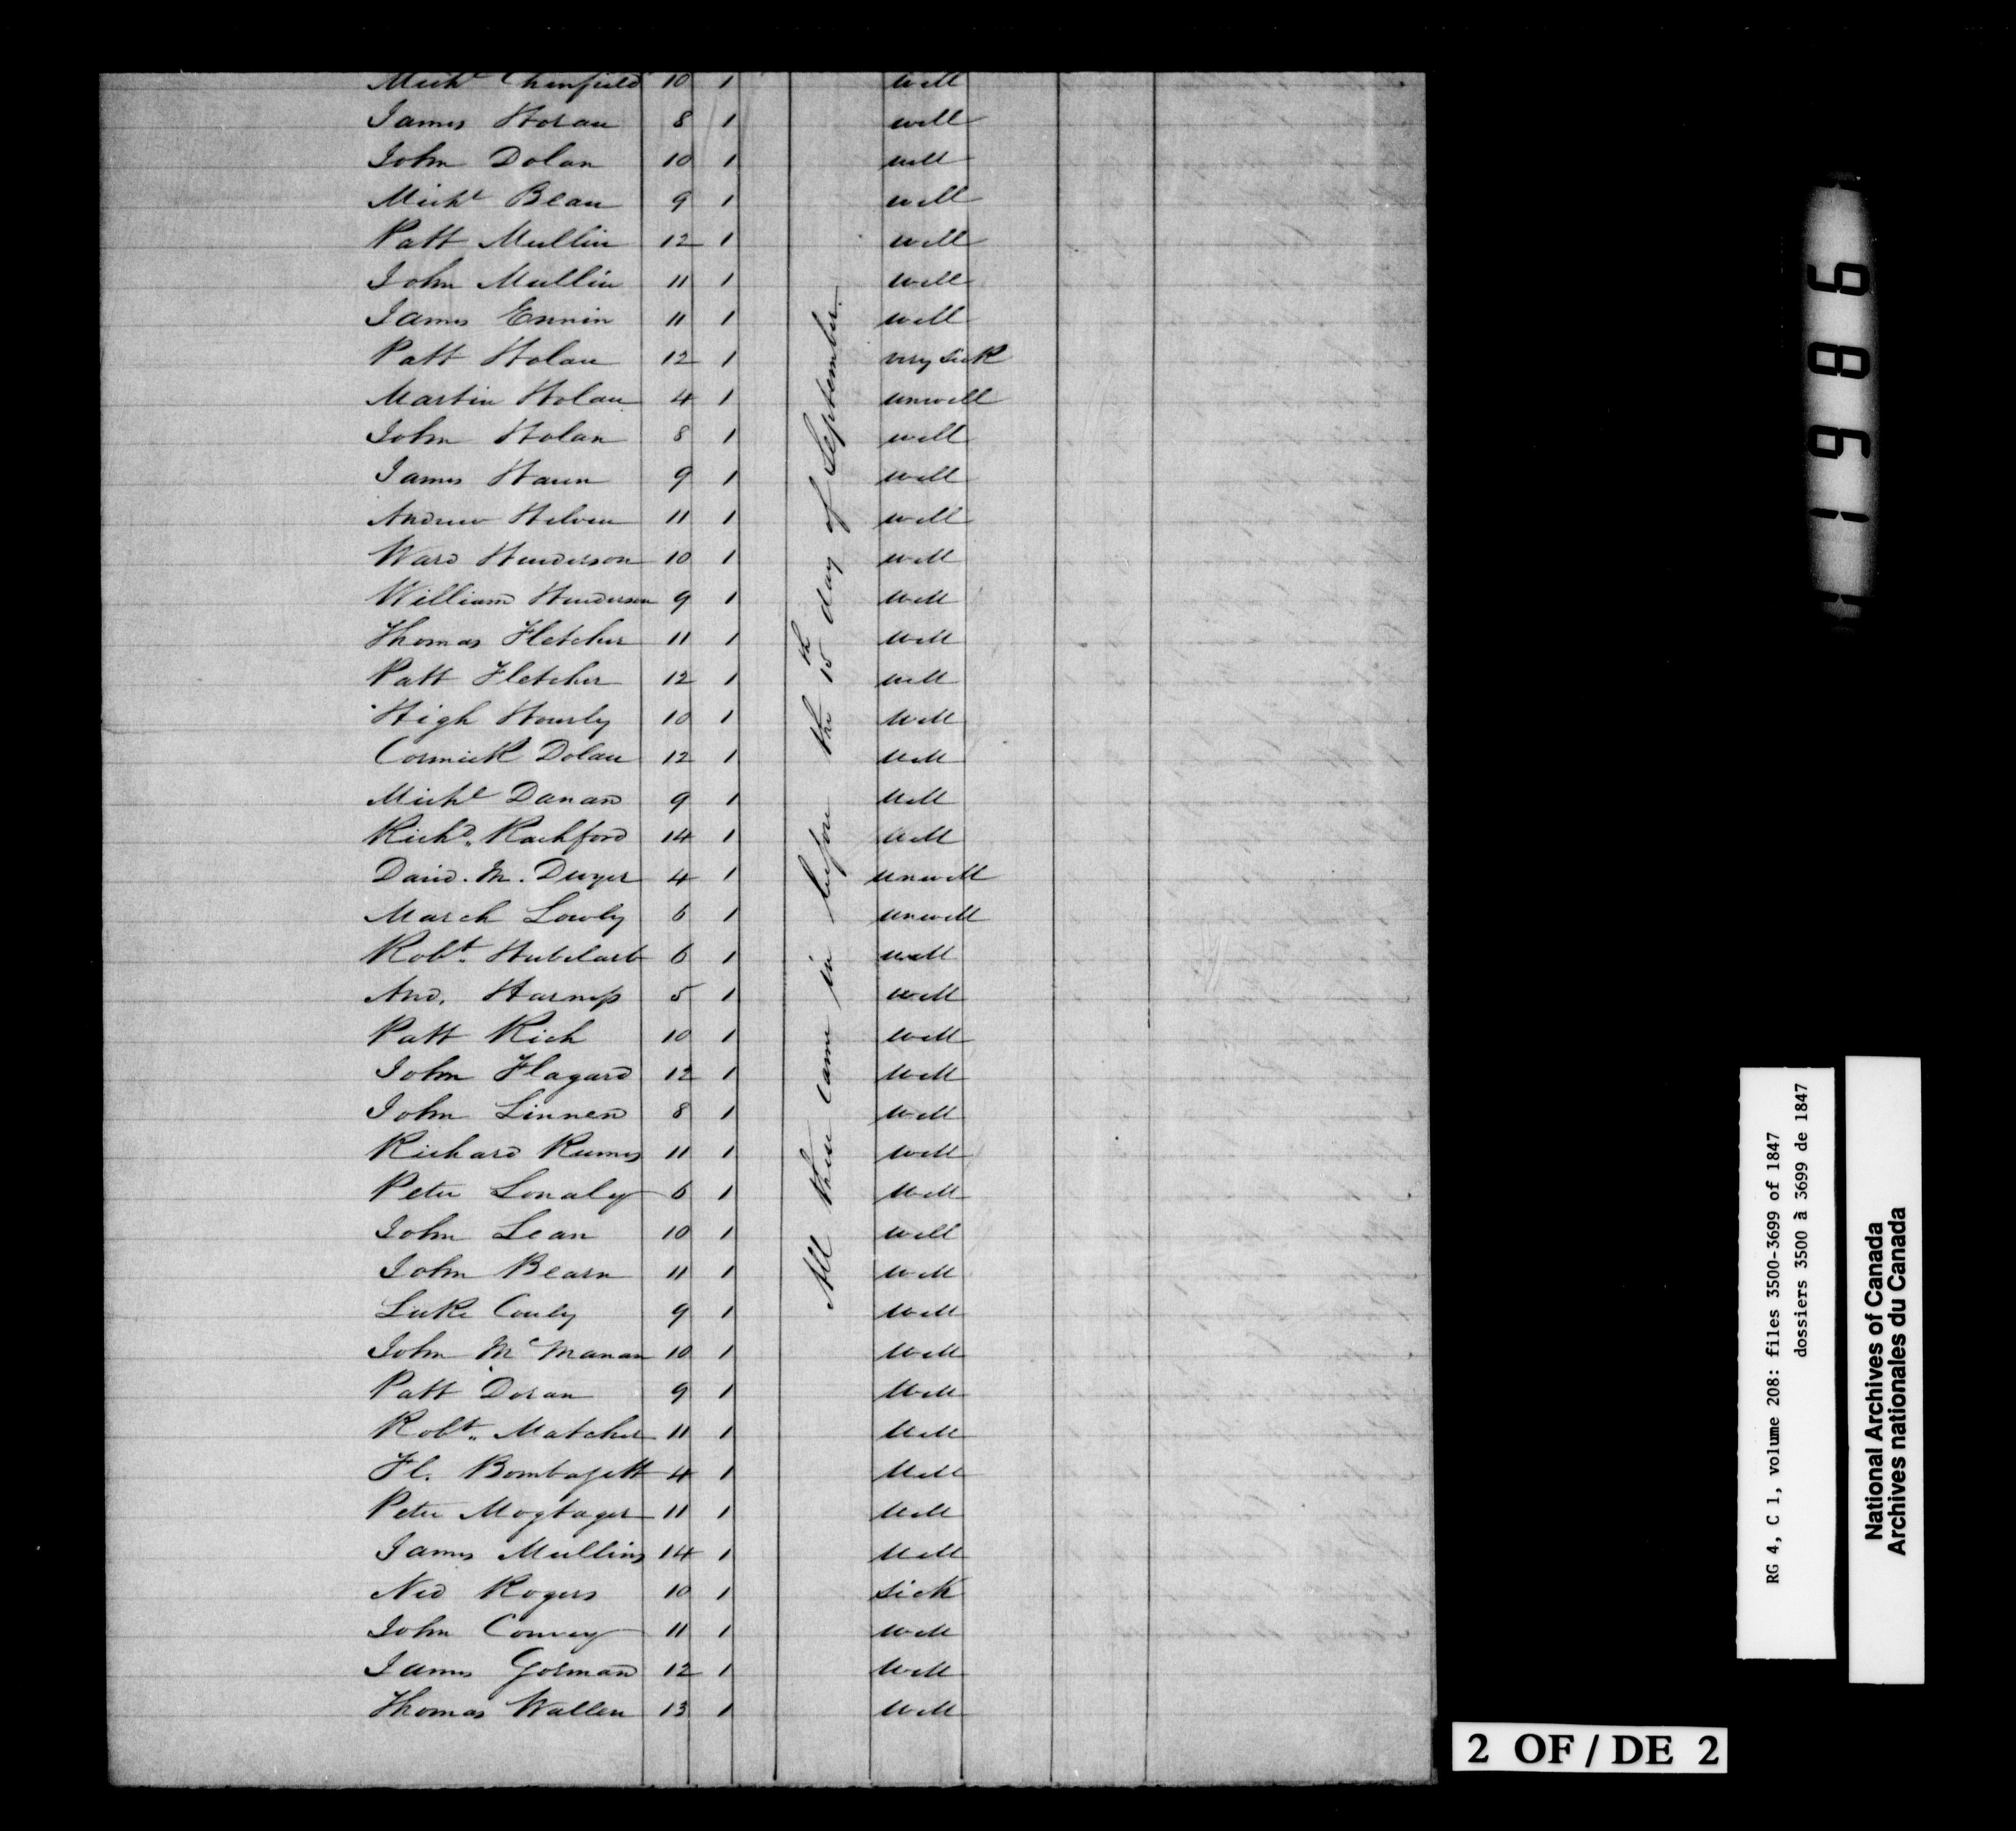 Mich^l Chenfield 10 1 well
James Horan 8 1 well
John Dolan 10 1 well
Mich^l Bean 9 1 well
Patt Mullin 12 1 well
John Mullin 11 1 well
James Ennin 11 1 well
Patt Holan 12 1 very sick
Martin Holan 4 1 unwell
John Holan 8 1 well
James Haun 9 1 well
Andrew Helven 11 1 well
Ward Henderson 10 1 well
William Henderson 9 1 well
Thomas Fletcher 11 1 well
Patt Fletcher 12 1 well
High Hourly 10 1 well
Cormick Dolan 12 1 well
Mich^l Danand 9 1 well
Rich^d. Rachford 14 1 well
David. M. Dwyer 4 1 unwell
March Lowly 6 1 unwell
Rob^t. 6 1 well
And. Harness 5 1 well
Patt Rich 10 1 well
John Flagard 12 1 well
John Linnen 8 1 well
Richard Rumes 11 1 well
Peter Lonaly 6 1 well
John Lean 10 1 well
John Bearn 11 1 well
Luke Conly 9 1 well
John M^c Manan 10 1 well
Patt Doran 9 1 well
Rob^t. Matcher 11 1 well
Fl. 4 1 well
Peter Mogtager 11 1 well
James Mullins 14 1 well
Ned Rogers 10 1 sick
John Convey 11 1 well
James Gorman 12 1 well
Thomas Wallen 13 1 well
All these came in before the 15^th day of September
119886
RG 4, C 1, volume 208: files 3500-3699 of 1847
dossiers 3500 à 3699 de 1847
National Archives of Canada
Archives nationales du Canada
2 OF / DE 2